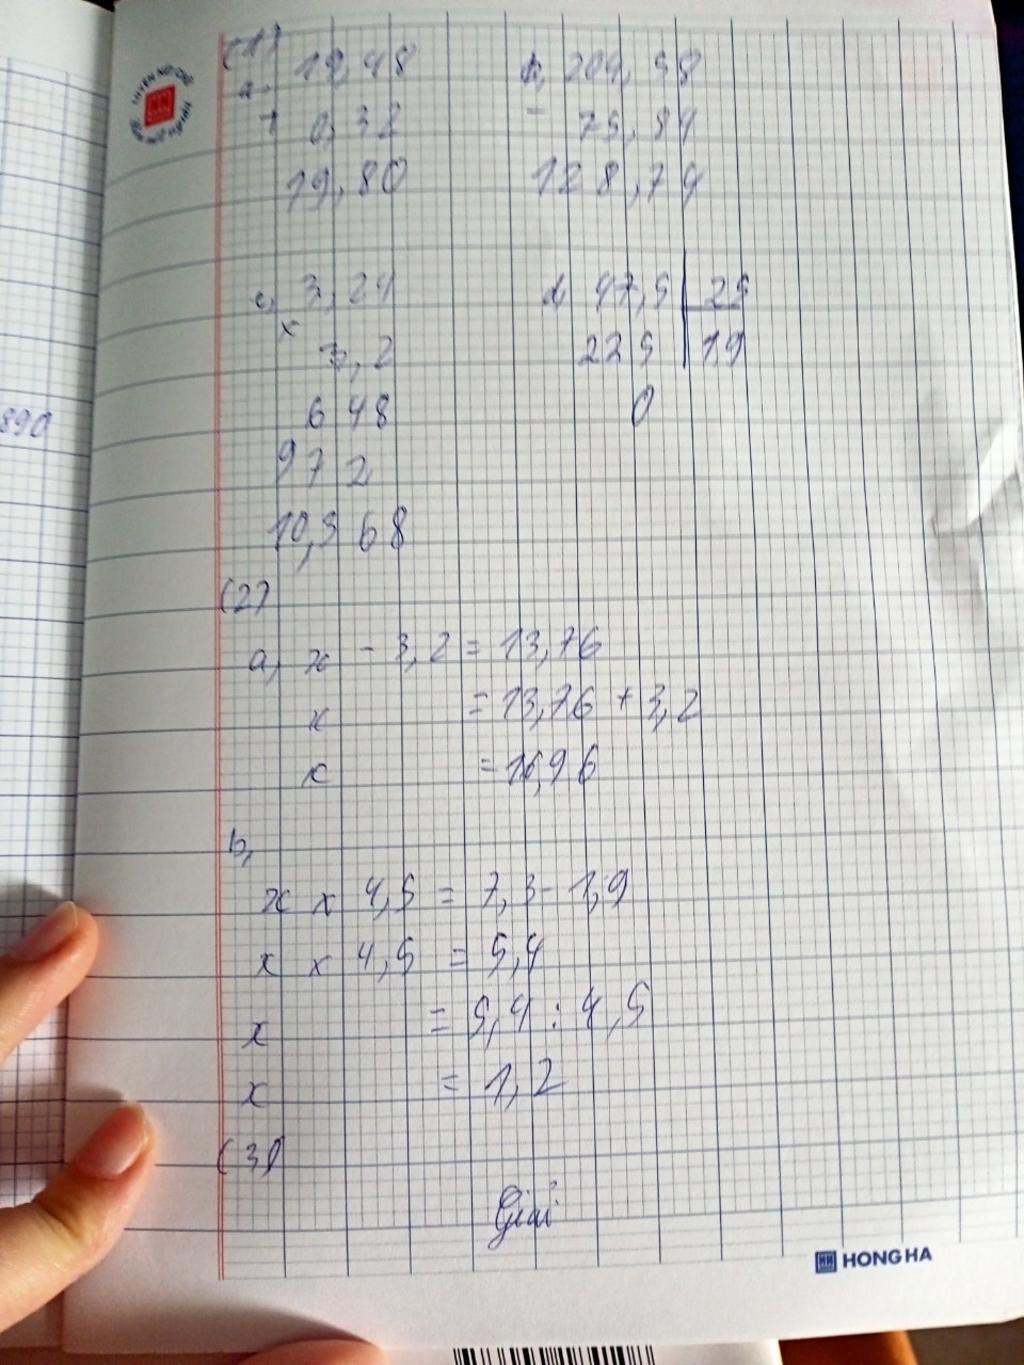 890
(1)
a. 19,48
+ 0,32
19,80
b, 204,58
- 75,84
128,74
c, 3,24
x
3,2
6 48
97 2
10,3 68
d, 47,5 25
22 5 1,9
0
(2)
a, x - 3,2 = 13,76
x = 13,76 + 3,2
x = 16,96
b,
x x 4,5 = 7,3 - 1,9
x x 4,5 = 5,4
x = 5,4 : 4,5
x = 1,2
(3)
Giải
HONG HA